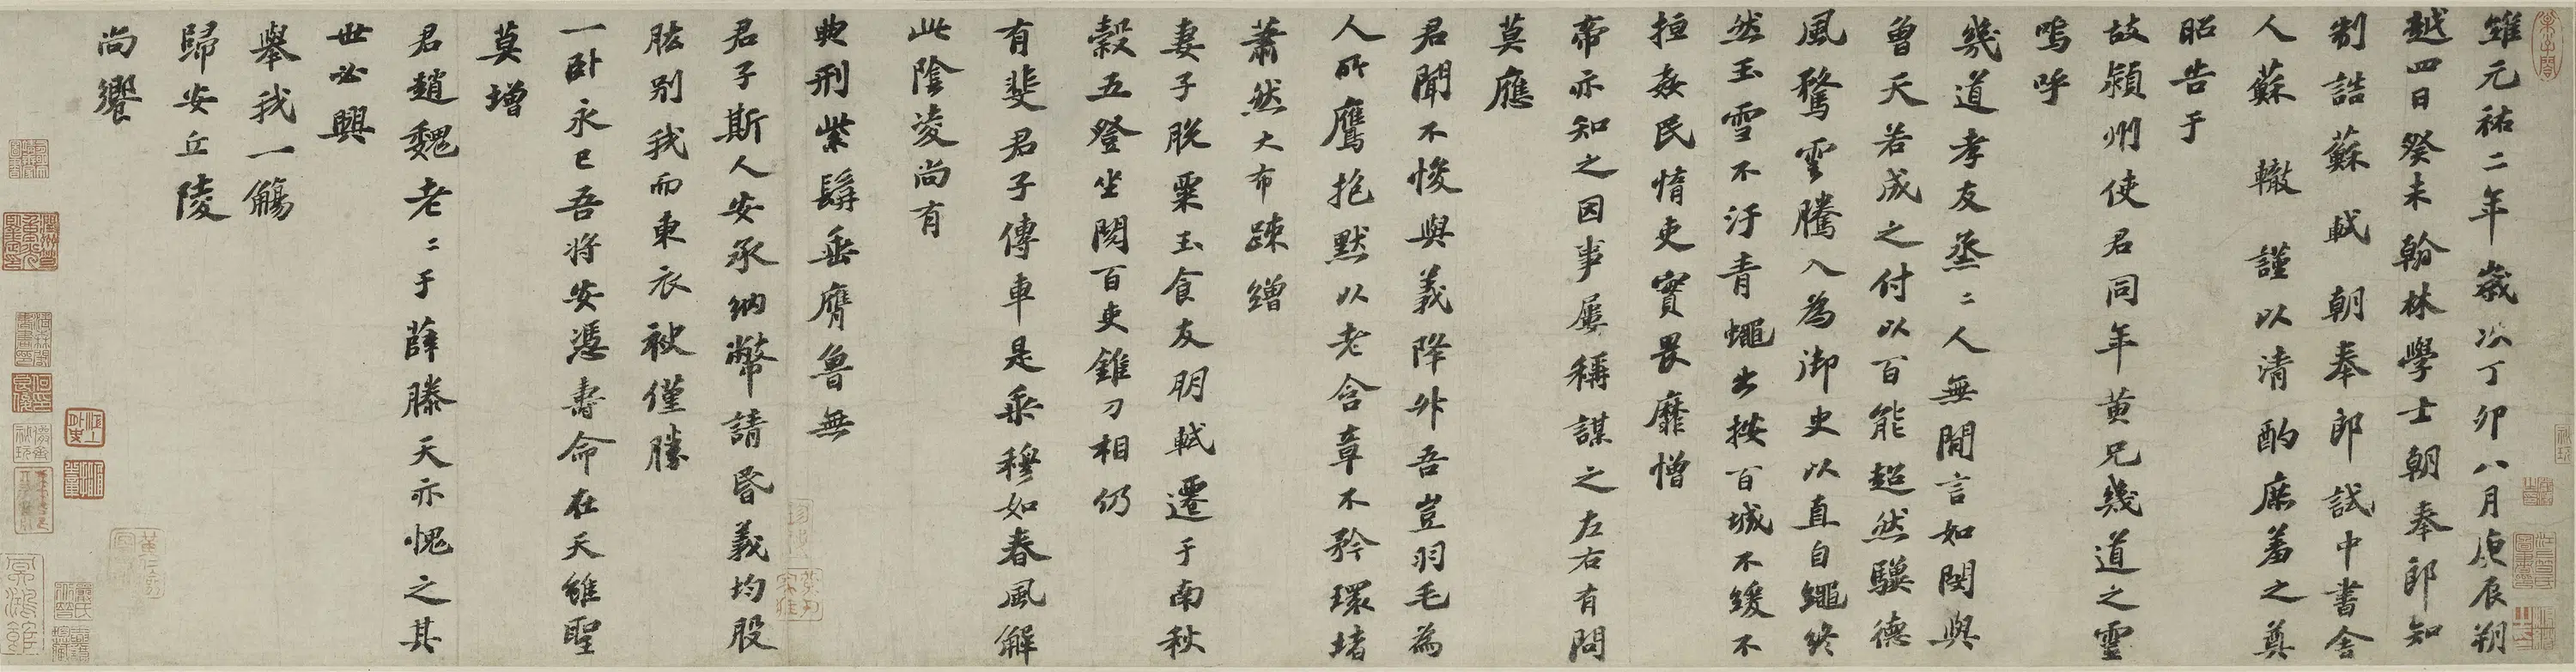 維元祐二年歲次丁卯八月庚辰朔
越四日癸未翰林學士朝奉郎知
制誥蘇軾朝奉郎試中書舍
人蘇轍謹以清酌庶羞之奠
昭告于
故潁州使君同年黄兄幾道之靈
嗚呼
幾道孝友烝〻人無閒言如閔與
曾天若成之付以百能超然驥德
風騖雲騰入為御史以直自繩終
然玉雪不汙青蠅出按百城不緩不
拒姦民惰吏實畏靡憎
帝亦知之因事屢稱謀之左右有問
莫應
君聞不悛與義降升吾豈羽毛為
人所鷹抱默以老含章不矜環堵
蕭然大布疎繒
妻子脫粟玉食友朋軾遷于南秋
穀五登坐閱百吏錐刀相仍
有斐君子傳車是乘穆如春風解
此陰凌尚有
典刑紫髯垂膺魯無
君子斯人安承納幣請昏義均股
肱别我而東衣袂僅勝
一卧永已吾将安憑壽命在天雖聖
莫增
君趙魏老〻于薛滕天亦愧之其
世必興
舉我一觴
歸安丘陵
尚饗